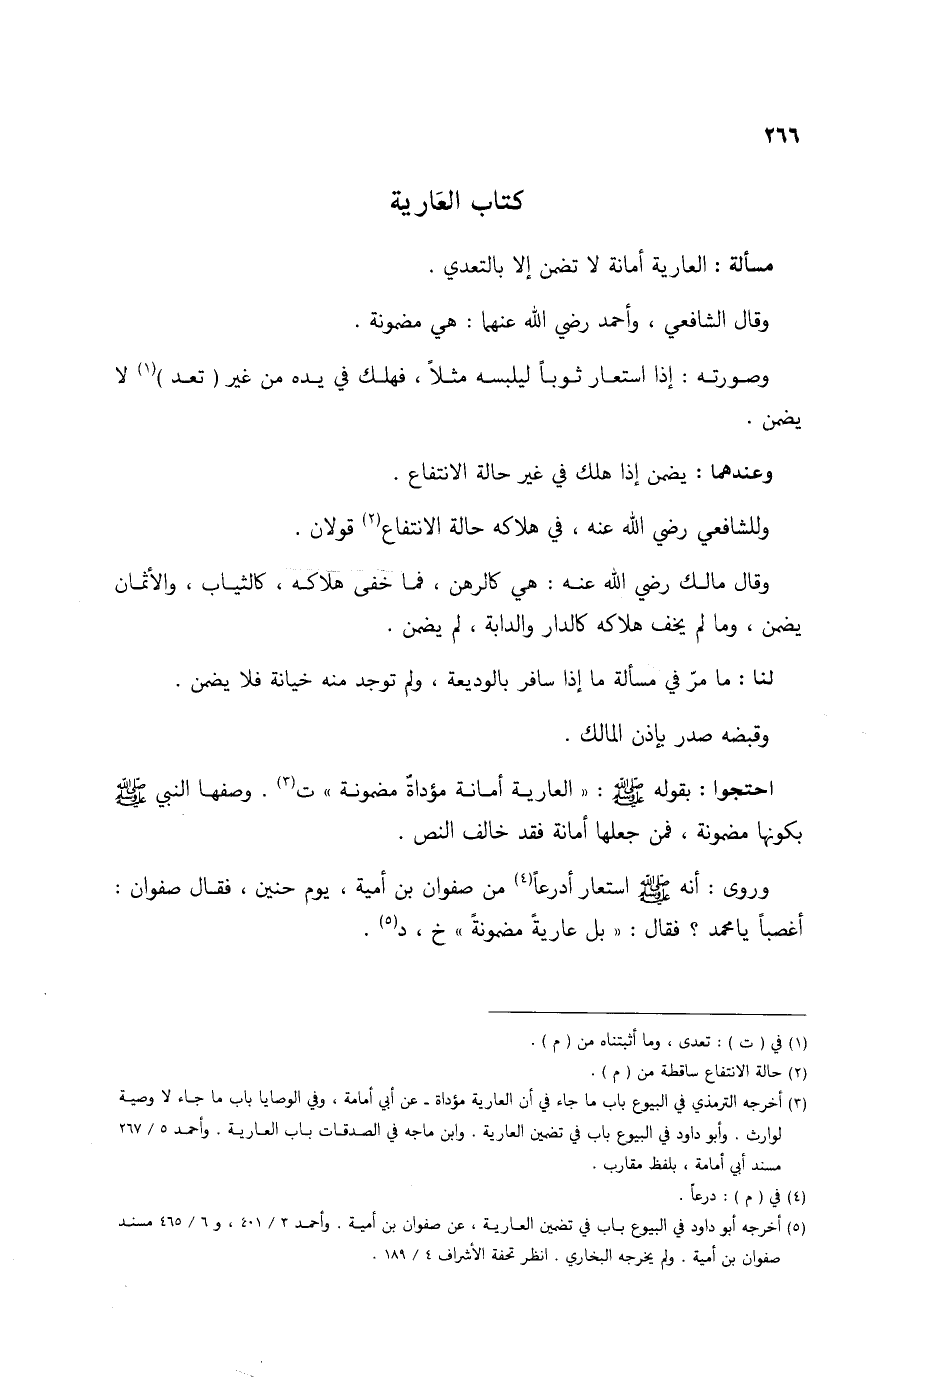 ٢٦٦
كتاب العَارية
مسألة : العارية أمانة لا تضمن إلا بالتعدي .
وقال الشافعي ، وأحمد رضي الله عنهما : هي مضمونة .
وصورته : إذا استعار ثوباً ليلبسه مثلاً ، فهلك في يده من غير ( تعد )(١) لا
يضمن .
وعندهما : يضمن إذا هلك في غير حالة الانتفاع .
وللشافعي رضي الله عنه ، في هلاكه حالة الانتفاع(٢) قولان .
وقال مالك رضي الله عنه : هي كالرهن ، فما خفى هلاكه ، كالثياب ، والأثمان
يضمن ، وما لم يخف هلاكه كالدار والدابة ، لم يضمن .
لنا : ما مرّ في مسألة ما إذا سافر بالوديعة ، ولم توجد منه خيانة فلا يضمن .
وقبضه صدر بإذن المالك .
احتجوا : بقوله ﷺ : « العارية أمانة مؤداةٌ مضمونة » ت(٣) . وصفها النبي ﷺ
بكونها مضمونة ، فمن جعلها أمانة فقد خالف النص .
وروى : أنه ﷺ استعار أدرعاً(٤) من صفوان بن أمية ، يوم حنين ، فقال صفوان :
أغصباً يامحمد ؟ فقال : « بل عاريةً مضمونةً » خ ، د(٥) .
(١) في ( ت ) : تعدى ، وما أثبتناه من ( م ) .
(٢) حالة الانتفاع ساقطة من ( م ) .
(٣) أخرجه الترمذي في البيوع باب ما جاء في أن العارية مؤداة ـ عن أبي أمامة ، وفي الوصايا باب ما جاء لا وصية
لوارث . وأبو داود في البيوع باب في تضمين العارية . وابن ماجه في الصدقات باب العارية . وأحمد ٥ / ٢٦٧
مسند أبي أمامة ، بلفظ مقارب .
(٤) في ( م ) : درعاً .
(٥) أخرجه أبو داود في البيوع باب في تضمين العارية ، عن صفوان بن أمية . وأحمد ٣ / ٤٠١ ، و ٦ / ٤٦٥ مسند
صفوان بن أمية . ولم يخرجه البخاري . انظر تحفة الأشراف ٤ / ١٨٩ .